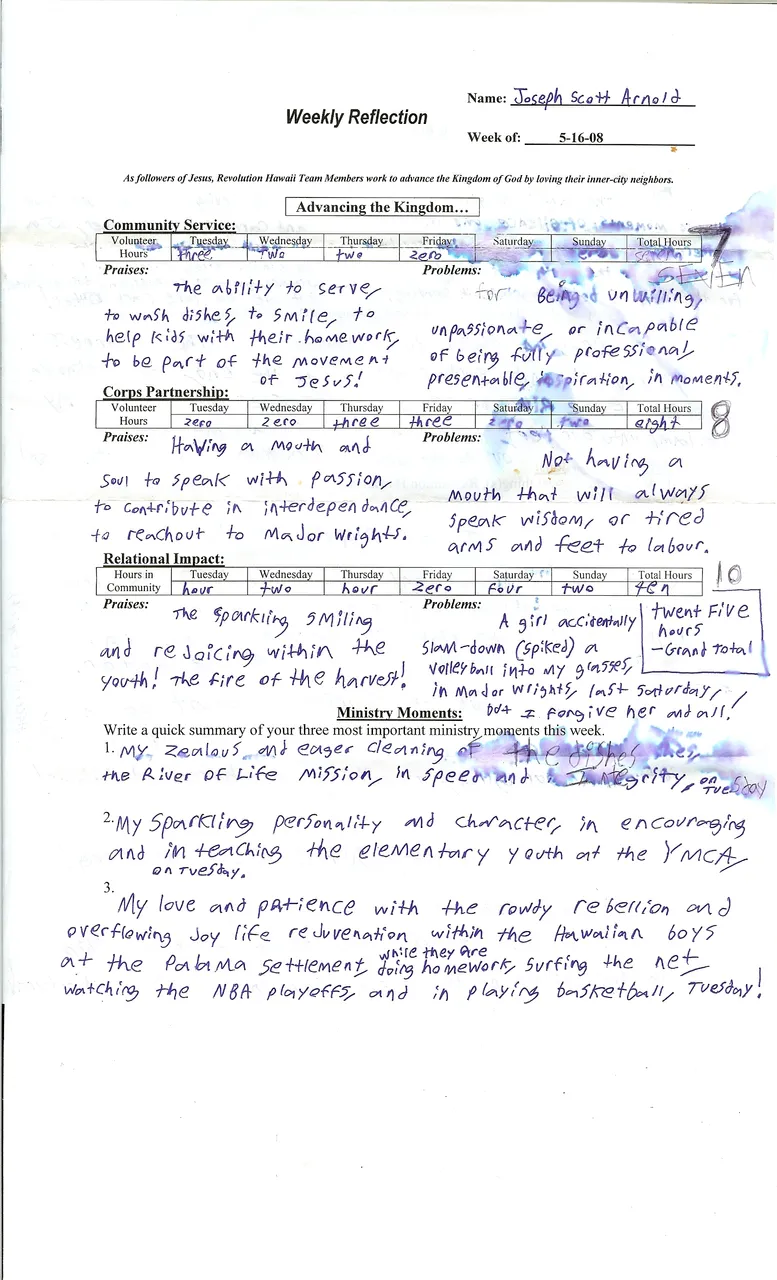 Name: Joseph Scott Arnold
Weekly Reflection
Week of: 5-16-08
As followers of Jesus, Revolution Hawaii Team Members work to advance the Kingdom of God by loving their inner-city neighbors.
Advancing the Kingdom…
Community Service:
Volunteer Hours Tuesday Wednesday Thursday Friday Saturday Sunday Total Hours 7
three two two zero zero seven
SEVEN
Praises:
The ability to serve,
to wash dishes, to smile, to
help kids with their homework,
to be part of the movement
of Jesus!
Problems:
for Being unwilling,
unpassionate, or incapable
of being fully professional,
presentable, inspiration, in moments.
Corps Partnership:
Volunteer Hours Tuesday Wednesday Thursday Friday Saturday Sunday Total Hours 8
zero zero three three zero two eight
Praises:
Having a mouth and
soul to speak with passion,
to contribute in interdependance,
to reachout to Major Wrights.
Problems:
Not having a
mouth that will always
speak wisdom, or tired
arms and feet to labour.
Relational Impact:
Hours in Community Tuesday Wednesday Thursday Friday Saturday Sunday Total Hours 10
hour two hour zero four two ten
Praises:
The sparkling smiling
and rejoicing within the
youth! The fire of the harvest!
Problems:
A girl accidentally
slam-down (spiked) a
volleyball into my glasses,
in Major Wrights, last saturday,
but I forgive her and all!
twent Five
hours
- Grand Total
Ministry Moments:
Write a quick summary of your three most important ministry moments this week.
1. My zealous and eager cleaning of the dishes
the River of Life Mission, in speed and Integrity, on Tuesday
2. My sparkling personality and character, in encouraging
and in teaching the elementary youth at the YMCA,
on Tuesday.
3.
My love and patience with the rowdy rebellion and
overflowing joy life rejuvenation within the Hawaiian boys
at the Palama Settlement, while they are doing homework, surfing the net,
watching the NBA playoffs, and in playing basketball, Tuesday!